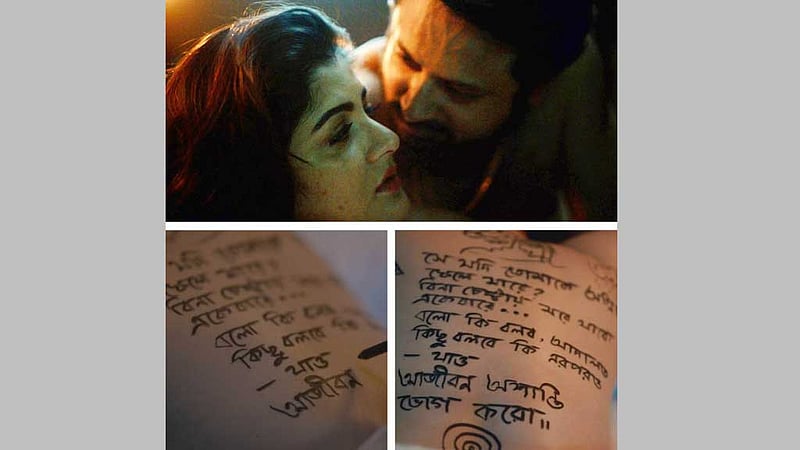 যদি তোমাকে
ফেলে মারে?
বিনা চেষ্টায়
একেবারে...
বলো কি বলব
কিছু বলবে কি
– যাও
আজীবন
সে যদি তোমাকে
ফেলে মারে?
বিনা চেষ্টায় মরে যাবো
একেবারে...
বলো কি বলব, আদালত
কিছু বলবে কি এরপরও
– যাও
আজীবন অশান্তি
ভোগ করো॥